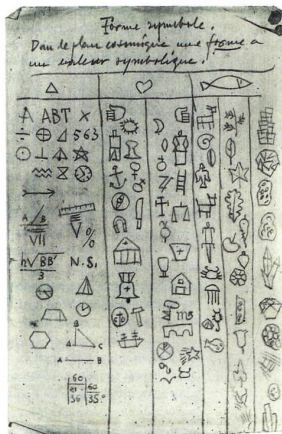 Forme symbole.
Dan le plan cosmique une forme a
un valeur symbolique.
A ABT X
÷ 563
VII V %
h√BB' N.S.
3
B
A C
A B
60
36 35